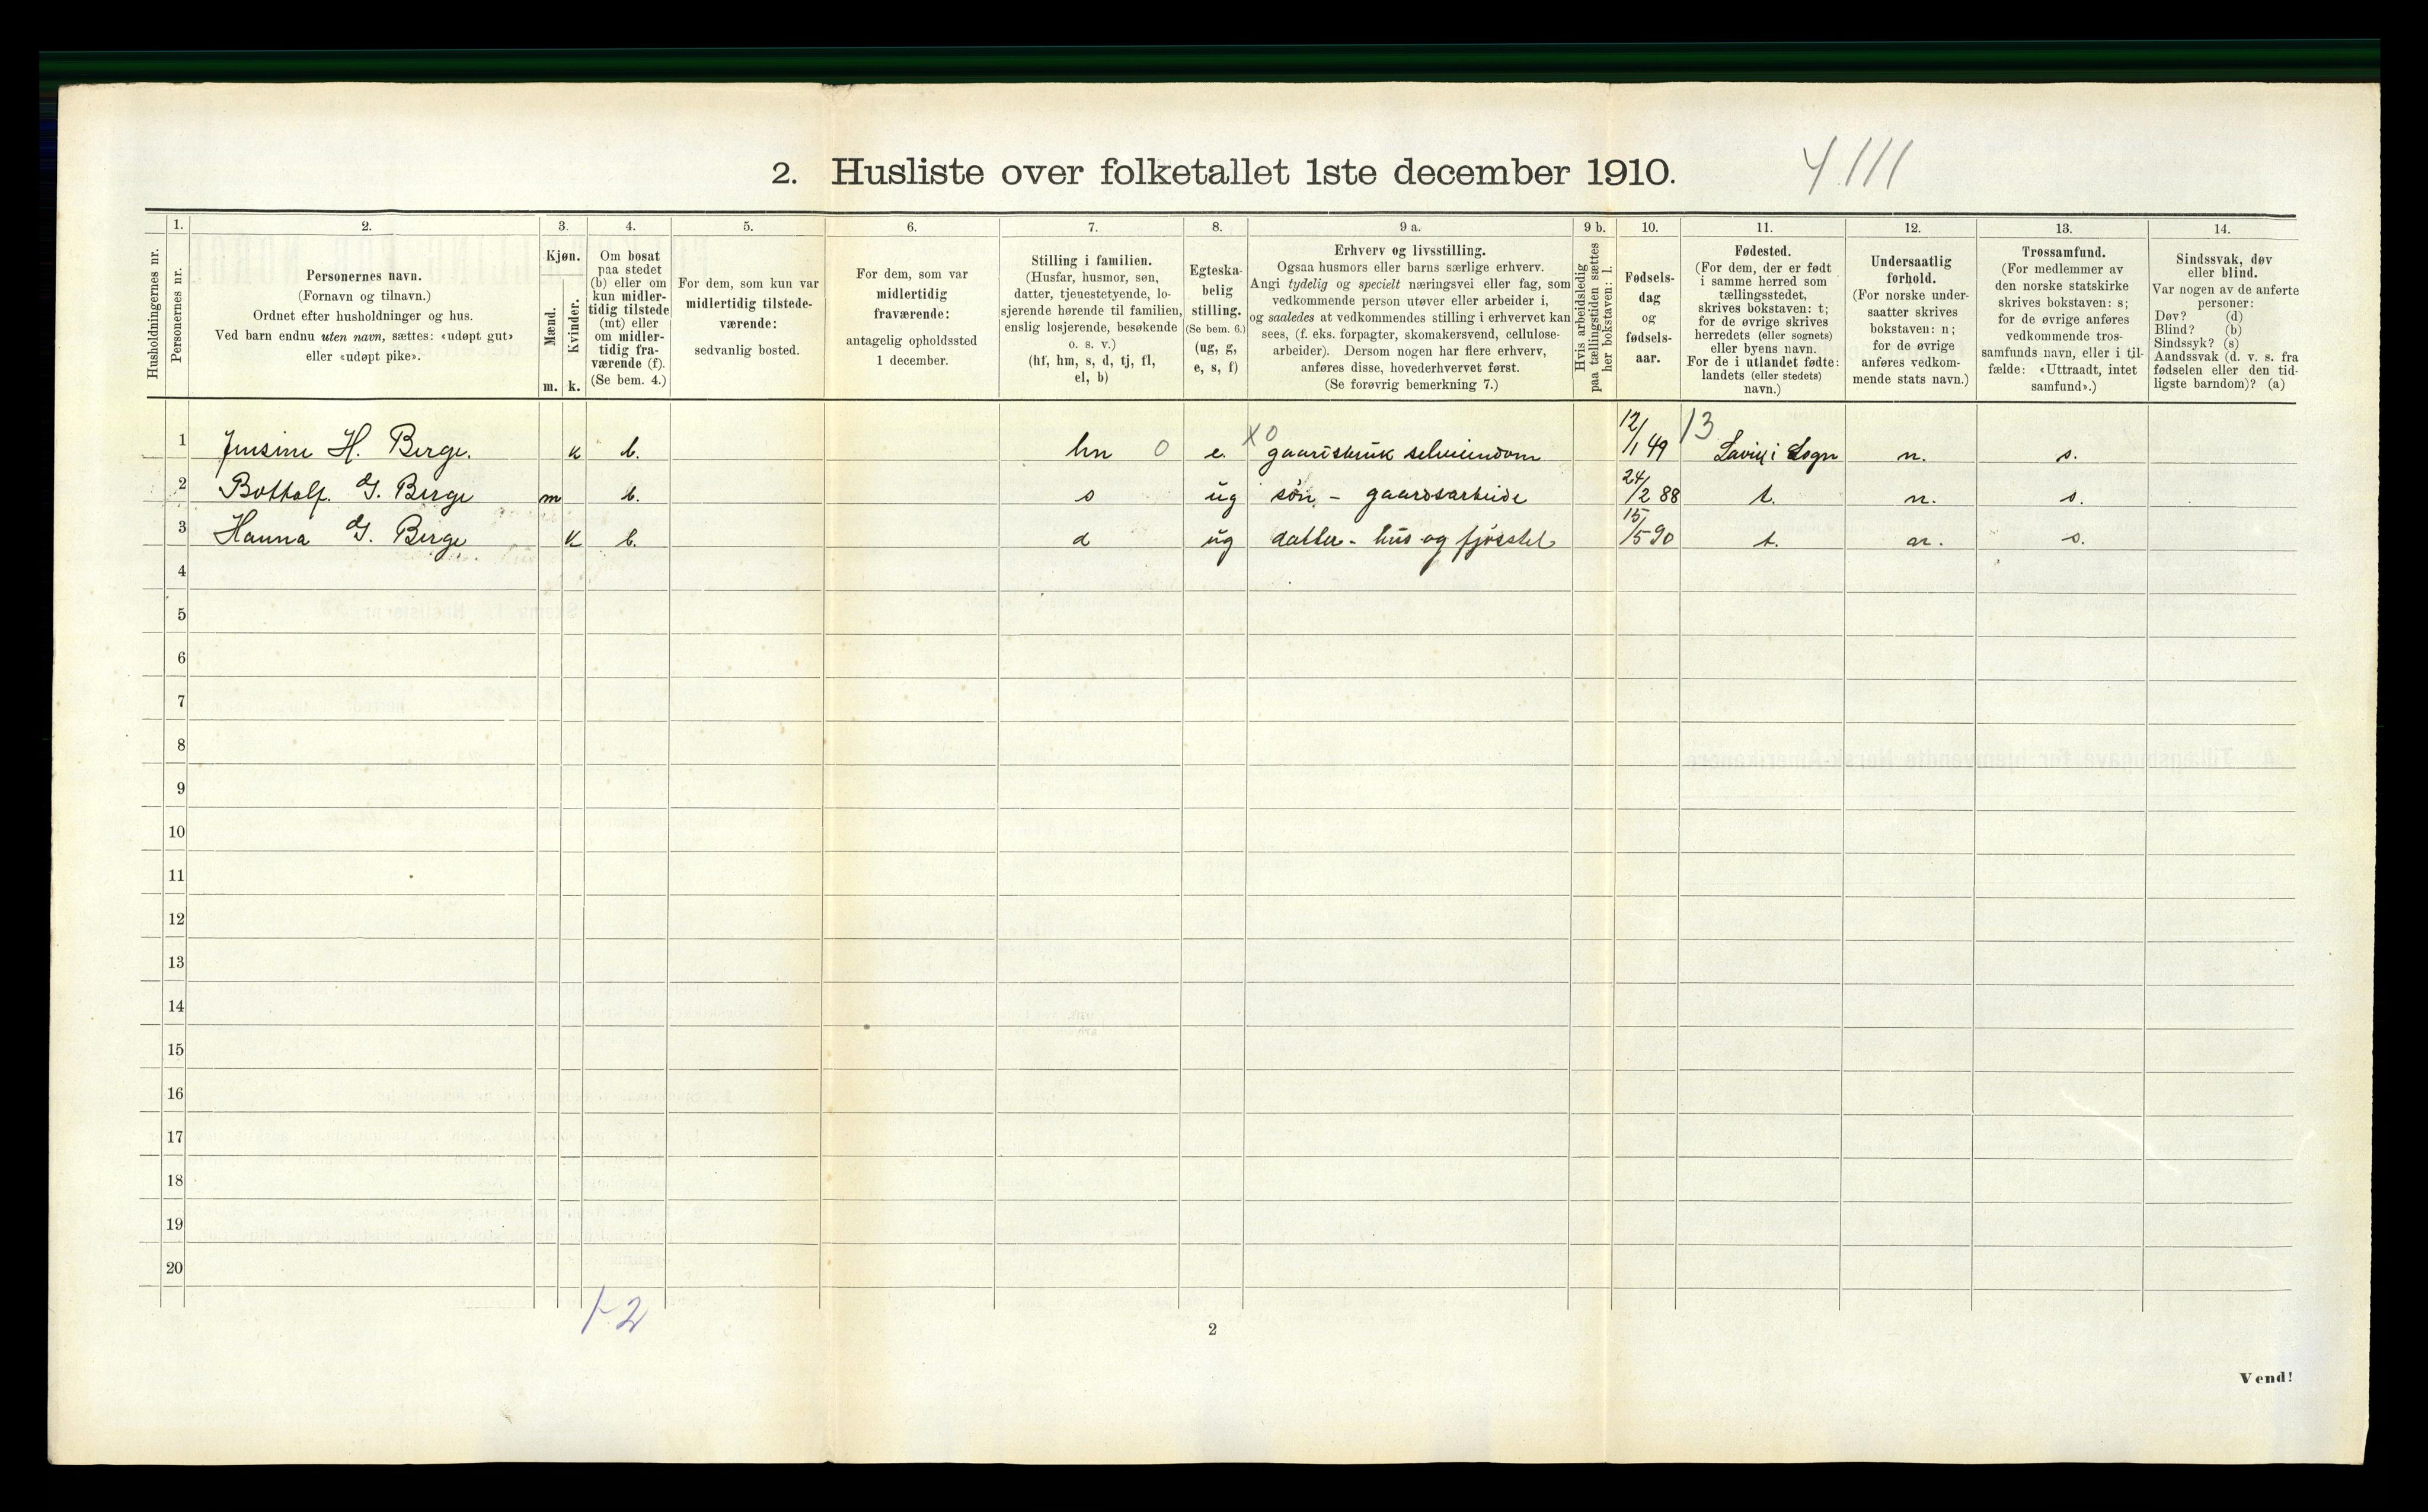 2. Husliste over folketallet 1ste december 1910.
4111
Husholdningernes nr.
1.
Personernes nr.
2.
Personernes navn.
(Fornavn og tilnavn.)
Ordnet efter husholdninger og hus.
Ved barn endnu uten navn, sættes: «udøpt gut»
eller «udøpt pike».
3.
Kjøn.
Mænd.
Kvinder.
m. k.
4.
Om bosat
paa stedet
(b) eller om
kun midler-
tidig tilstede
(mt) eller
om midler-
tidig fra-
værende (f).
(Se bem. 4.)
5.
For dem, som kun var
midlertidig tilstede-
værende:
sedvanlig bosted.
6.
For dem, som var
midlertidig
fraværende:
antagelig opholdssted
1 december.
7.
Stilling i familien.
(Husfar, husmor, søn,
datter, tjenestetyende, lo-
sjerende hørende til familien,
enslig losjerende, besøkende
o. s. v.)
(hf, hm, s, d, tj, fl,
el, b)
8.
Egteska-
belig
stilling.
(Se bem. 6.)
(ug, g,
e, s, f)
9 a.
Erhverv og livsstilling.
Ogsaa husmors eller barns særlige erhverv.
Angi tydelig og specielt næringsvei eller fag, som
vedkommende person utøver eller arbeider i,
og saaledes at vedkommendes stilling i erhvervet kan
sees, (f. eks. forpagter, skomakersvend, cellulose-
arbeider). Dersom nogen har flere erhverv,
anføres disse, hovederhvervet først.
(Se forøvrig bemerkning 7.)
9 b.
Hvis arbeidsledig
paa tællingstiden sættes
her bokstaven: l.
10.
Fødsels-
dag
og
fødsels-
aar.
11.
Fødested.
(For dem, der er født
i samme herred som
tællingsstedet,
skrives bokstaven: t;
for de øvrige skrives
herredets (eller sognets)
eller byens navn.
For de i utlandet fødte:
landets (eller stedets)
navn.)
12.
Undersaatlig
forhold.
(For norske under-
saatter skrives
bokstaven: n;
for de øvrige
anføres vedkom-
mende stats navn.)
13.
Trossamfund.
(For medlemmer av
den norske statskirke
skrives bokstaven: s;
for de øvrige anføres
vedkommende tros-
samfunds navn, eller i til-
fælde: «Uttraadt, intet
samfund».)
14.
Sindssvak, døv
eller blind.
Var nogen av de anførte
personer:
Døv? (d)
Blind? (b)
Sindssyk? (s)
Aandssvak (d. v. s. fra
fødselen eller den tid-
ligste barndom)? (a)
1 Jensine H. Berge. k b. hm 0 e. X0 gaardsbruk selveiendom 12/1 49 13 Lavik i Sogn n. s.
2 Bottolf. G. Berge m b. s ug søn - gaardsarbeide 24/2 88 t. n. s.
3 Hanna G. Berge k b. d ug datter - hus og fjøsstel 15/5 90 t. n. s.
4
5
6
7
8
9
10
11
12
13
14
15
16
17
18
19
20
1-2
2
Vend!